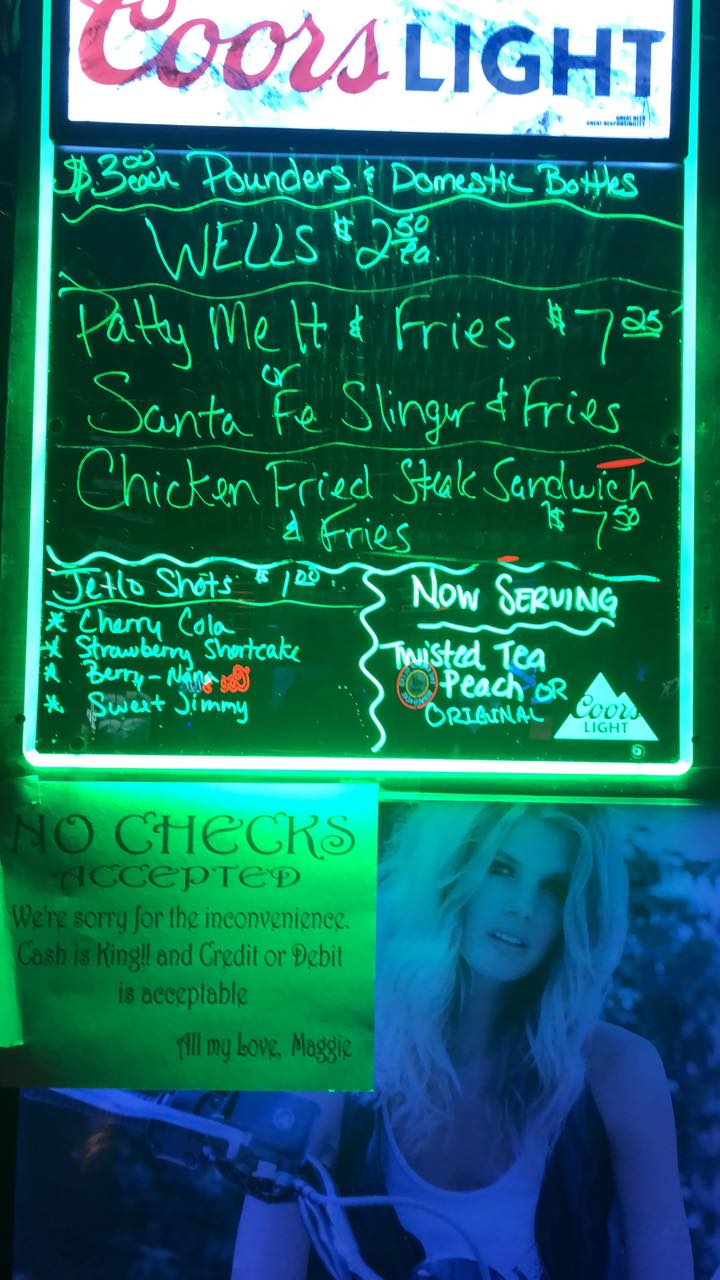 Coors LIGHT
$3.00 each Pounders & Domestic Bottles
WELLS $2.50 ea.
Patty Melt & Fries $7.25
or
Santa Fe Slinger & Fries
Chicken Fried Steak Sandwich
& Fries $7.50
Jello Shots $1.00
* Cherry Cola
* Strawberry Shortcake
* Berry-Nana
* Sweet Jimmy
NOW SERVING
Twisted Tea
Peach OR
ORIGINAL
Coors
LIGHT
NO CHECKS
ACCEPTED
We're sorry for the inconvenience.
Cash is King!! and Credit or Debit
is acceptable
All my Love, Maggie